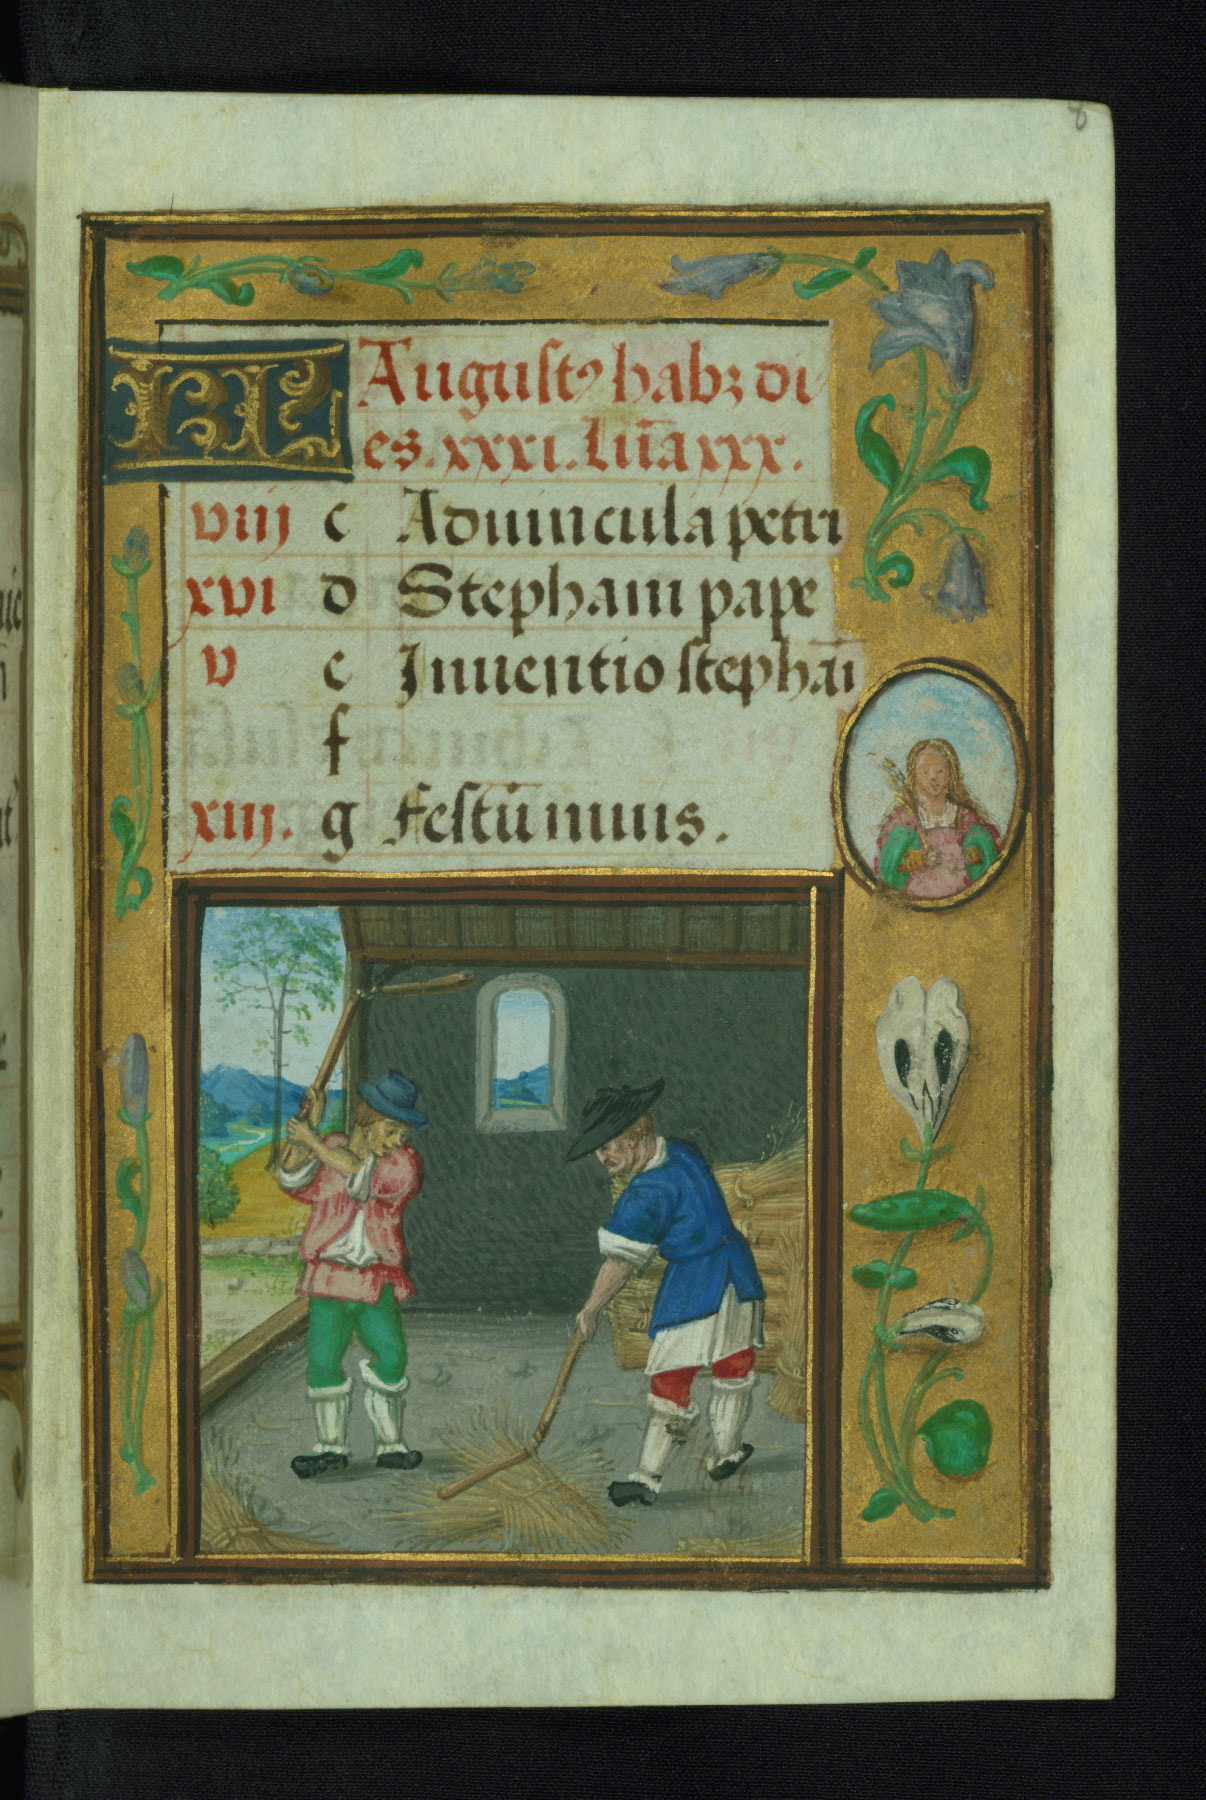 8
KL Augustꝰ habꝫ di
es .xxxi. Lūa xxx.
viij c Aduincula petri
xvi d Stephani pape
v e Inuentio stephāi
f
xiij. g Festū niuis.